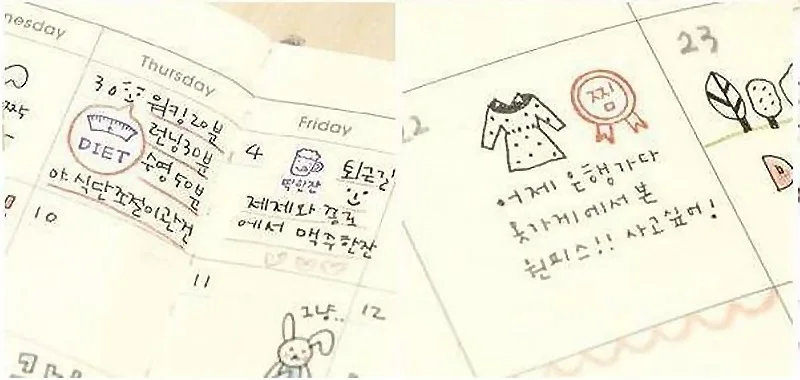 nesday
Thursday
30
워킹20분
런닝30분
수영50분
DIET
야식단조절이관건
Friday
4
딱한잔
퇴근길
제제와 종로
에서 맥주한잔
10
11
그냥..
12
22
23
찜
어제 은행가다
옷가게에서 본
원피스!! 사고싶어!